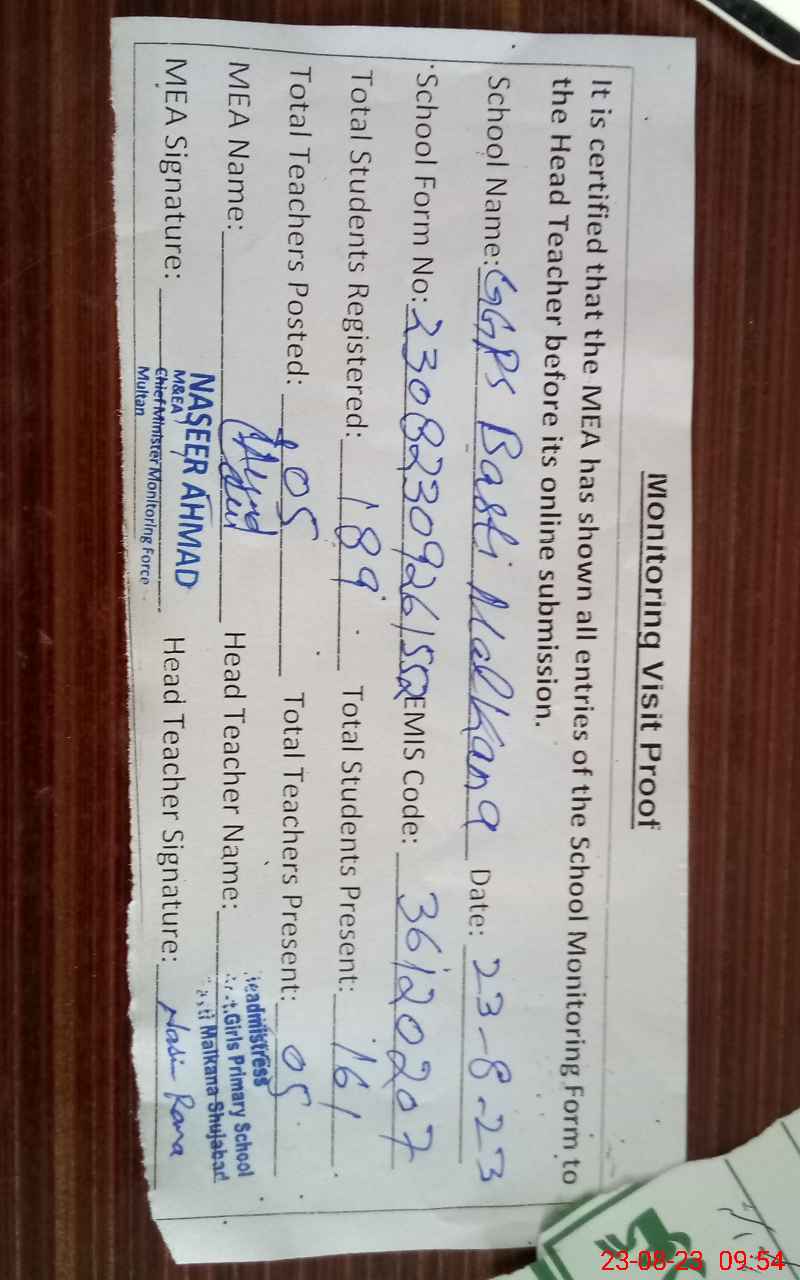 Monitoring Visit Proof
It is certified that the MEA has shown all entries of the School Monitoring Form to
the Head Teacher before its online submission.
School Name: GGPS Basti Malkana Date: 23-8-23
School Form No: 23082309261552 EMIS Code: 36120207
Total Students Registered: 189 Total Students Present: 161
Total Teachers Posted: 05 Total Teachers Present: 05
MEA Name: Head Teacher Name:
Headmistress
Girls Primary School
Basti Malkana Shujabad
MEA Signature: Head Teacher Signature: Nasim Rana
NASEER AHMAD
M&EA
Chief Minister Monitoring Force
Multan
23-08-23 09:54